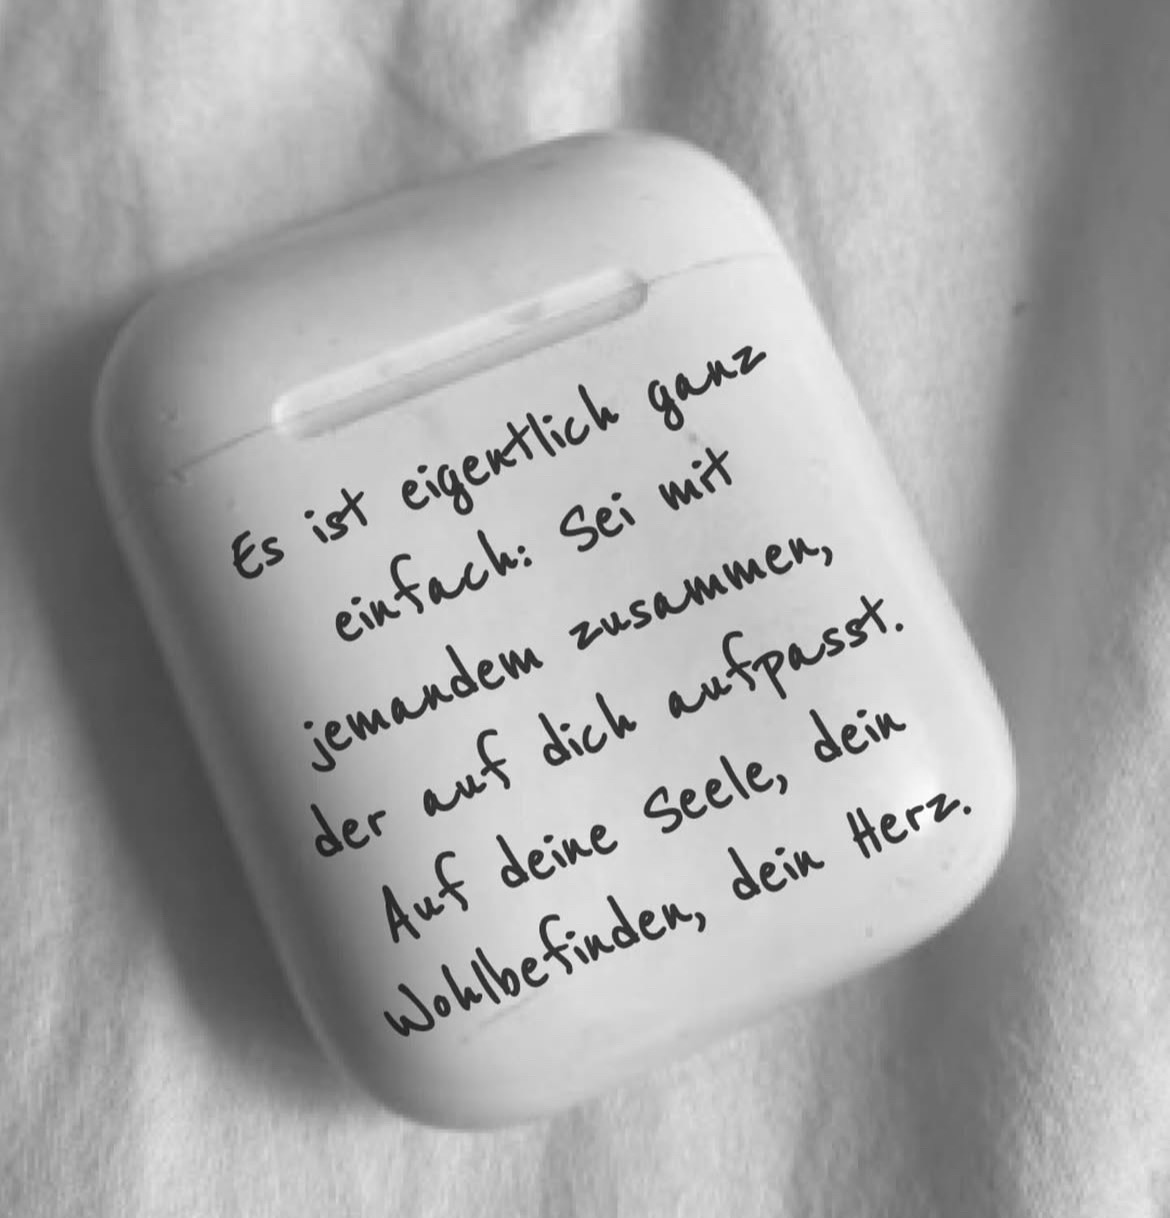 Es ist eigentlich ganz
einfach: Sei mit
jemandem zusammen,
der auf dich aufpasst.
Auf deine Seele, dein
Wohlbefinden, dein Herz.